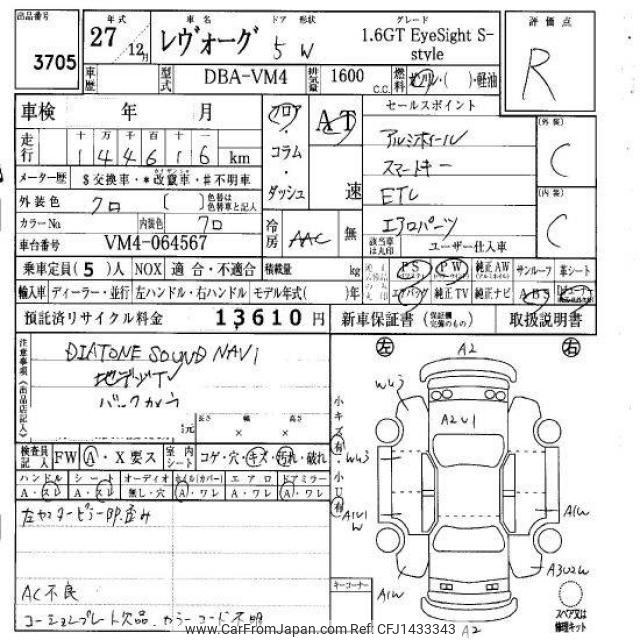 出品番号 3705
年式 27 年 12月
車名 レヴォーグ
ドア 形状 5 W
グレード 1.6GT EyeSight S-style
評価点 R
車歴
型式 DBA-VM4
排気量 1600 C.C.
燃料 ガソリン・( )・軽油
車検 年 月
フロア・コラム・ダッシュ
AT 速
セールスポイント
アルミホイール
スマートキー
ETC
エアロパーツ
(外装) C
(内装) C
走行 十 万 千 百 十 一
1 4 4 6 1 6 km
メーター歴 $交換車・*改竄車・#不明車
外装色 クロ ( ) 色替は色替車と記入
カラーNo 内装色 クロ
冷房 AAC 無
該当車は丸印 ユーザー仕入車
車台番号 VM4-064567
乗車定員(5)人 NOX 適合・不適合 積載量 kg
PS PW 純正AW サンルーフ 革シート
輸入車 ディーラー・並行 左ハンドル・右ハンドル モデル年式( )年
エアバッグ 純正TV 純正ナビ ABS
預託済リサイクル料金 13610 円
新車保証書 (保証欄完備のもの) 取扱説明書
注意事項(出品店記入)
DIATONE SOUND NAVI
地デジTV
バックカメラ
長さ 幅 高さ
× ×
検査員記入 FW A・X要ス 室内シート コゲ・穴・キズ・汚れ・破れ
ハンドル シート オーディオ ホイル(カバー) エアロ ドアミラー
A・スレ A・スレ 無し・穴 A・ワレ A・ワレ A・ワレ
左センターピラー部歪み
AC不良
コーションプレート欠品 カラーコード不明
小キズ有・小凹有
左 右
A2
WU3
A2U1
WU3
A1U1
W
A1W
A3U2W
A1W
A2
キーコーナー
スペア又は修理キット
www.CarFromJapan.com Ref CFJ1433343